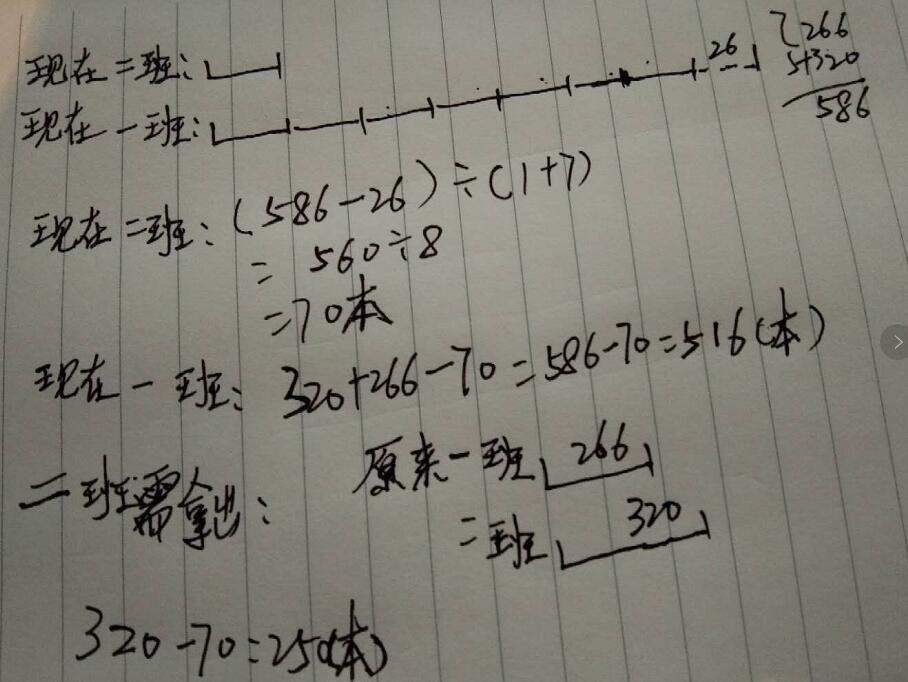 现在二班:
26
266
+320
586
现在一班:
现在二班:(586-26)÷(1+7)
= 560÷8
=70本
现在一班: 320+266-70=586-70=516(本)
原来一班 266
二班需拿出:
二班 320
320-70=250(本)